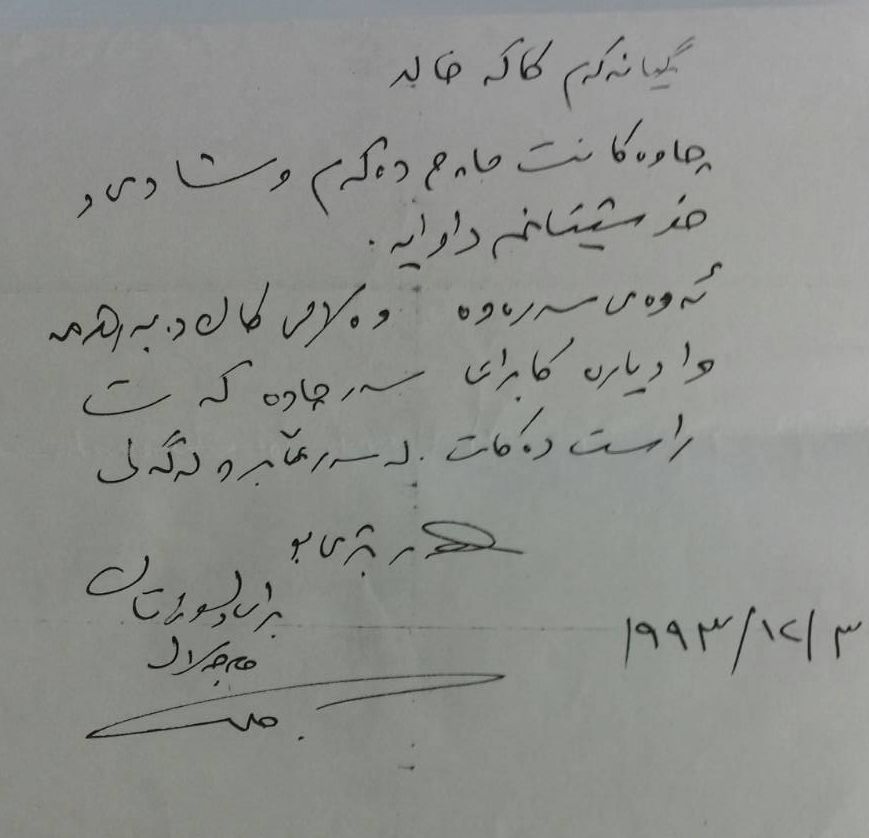 گیانەکەم کاکە خالد
چاوەکانت ماچ دەکەم و شادی و
خۆشیتانم داوایە.
ئەوەی سەرەوە وەڵامی کاک د. بەرهەمە
وا دیارە کابرای سەر جادە کە ت
راست دەکات. لە سەر بڕۆ لەگەڵی
هەر بژی بۆ
برای دڵسۆزتان
مام جلال
١٩٩٣/١٢/٣